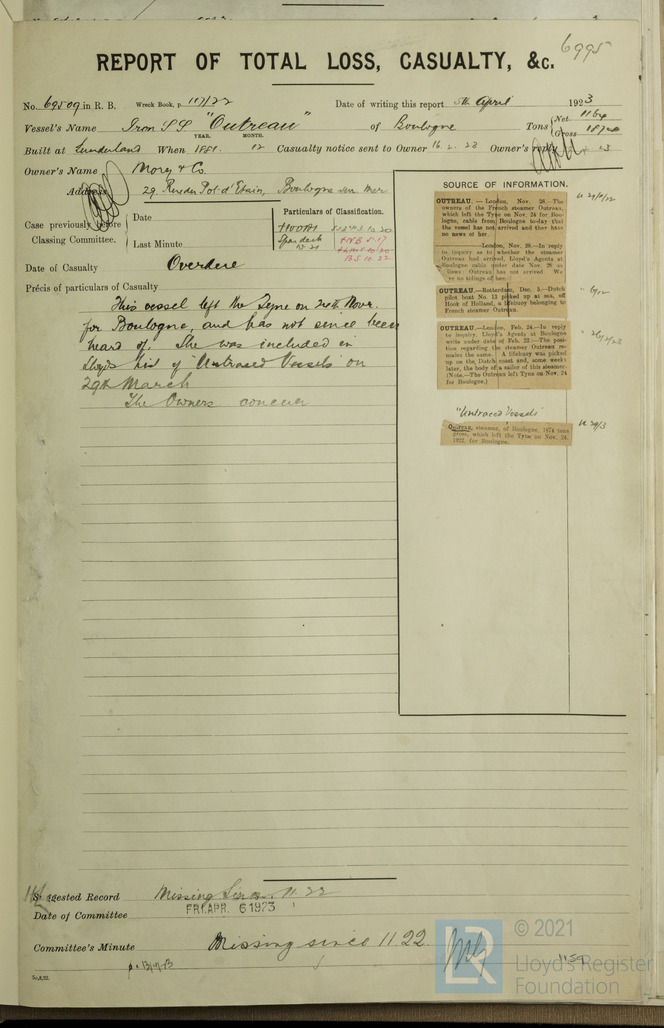 6995
REPORT OF TOTAL LOSS, CASUALTY, &c.
No. 69509 in R. B. Wreck Book, p. 117/22 Date of writing this report 5th April 1923
Vessel's Name Iron SS "Outreau" of Boulogne Tons { Net Gross
YEAR. MONTH.
Built at Sunderland When 1881. 12 Casualty notice sent to Owner 16. 2. 23 Owner's reply
Owner's Name Mory & Co.
Address 29. Rue du Pot d'Etain, Boulogne sur mer
Case previously before Classing Committee. { Date
Last Minute
Particulars of Classification.
Spar deck
Date of Casualty Overdue
Précis of particulars of Casualty
This vessel left the Tyne on 24th Novr.
for Boulogne, and has not since been
heard of. She was included in
Lloyds List of "Untraced Vessels" on
29th March
The Owners concur
SOURCE OF INFORMATION.
OUTREAU.—London, Nov. 28.—The
owners of the French steamer Outreau,
which left the Tyne on Nov. 24 for Bou-
logne, cable from Boulogne to-day that
the vessel has not arrived and they have
no news of her.
London, Nov. 29.—In reply
to inquiry as to whether the steamer
Outreau had arrived, Lloyd's Agents at
Boulogne cable under date Nov. 28 as
follows: Outreau has not arrived. We
have no tidings of her.
OUTREAU.—Rotterdam, Dec. 5.—Dutch
pilot boat No. 13 picked up at sea, off
Hook of Holland, a lifebuoy belonging to
French steamer Outreau.
OUTREAU.—London, Feb. 24.—In reply
to inquiry, Lloyd's Agents at Boulogne
write under date of Feb. 22:—The posi-
tion regarding the steamer Outreau re-
mains the same. A lifebuoy was picked
up on the Dutch coast and, some weeks
later, the body of a sailor of this steamer.
(Note.—The Outreau left Tyne on Nov. 24
for Boulogne.)
"Untraced Vessels"
OUTREAU, steamer, of Boulogne, 1874 tons
gross, which left the Tyne on Nov. 24,
1922, for Boulogne.
Ll 29/3
Suggested Record Missing Since 11.22
Date of Committee FRI. APR. 6 1923
Committee's Minute Missing since 11.22.
© 2021
LR
Lloyd's Register
Foundation